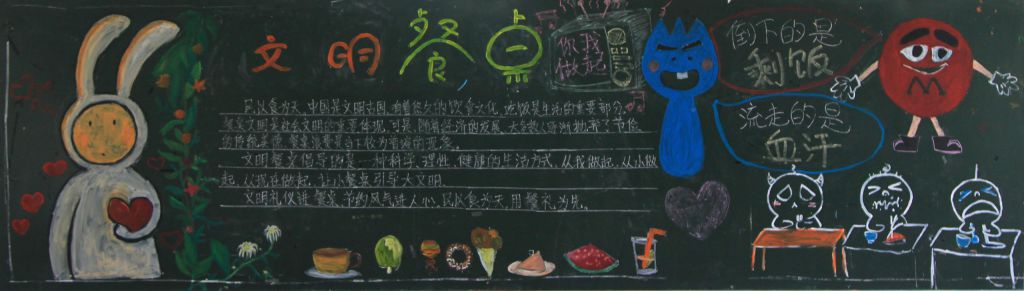 文明餐桌
你我
做起
倒下的是
剩饭
流走的是
血汗
民以食为天,中国是文明古国,有着悠久的饮食文化,吃饭是生活的重要部分
餐桌文明是社会文明的重要体现,可是,随着经济的发展
文明餐桌倡导的是一种科学、理性、健康的生活方式,从我做起,从小做
起,从现在做起,让小餐桌引导大文明.
文明礼仪进餐桌,节约风气进人心,民以食为天,用餐礼为先.
M